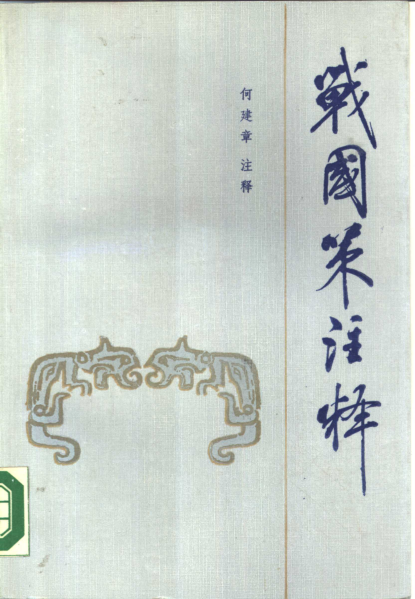 戰國策注释
何建章 注释